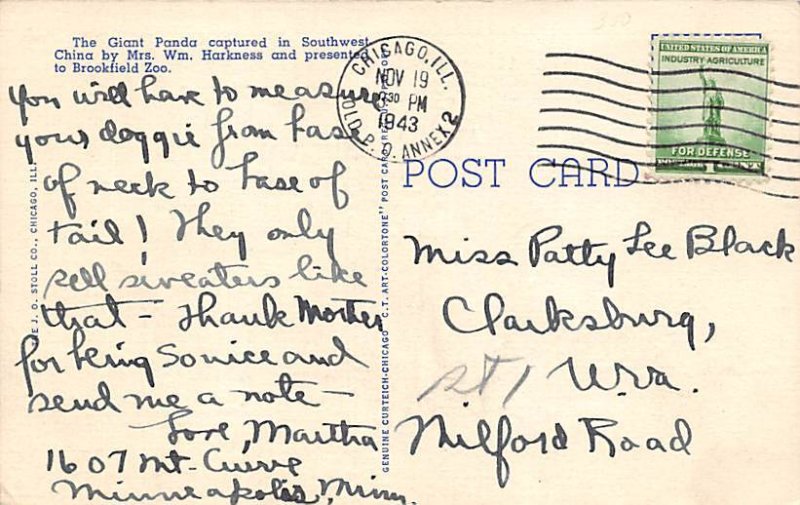 The Giant Panda captured in Southwest
China by Mrs. Wm. Harkness and presented
to Brookfield Zoo.
you will have to measure
your doggie from base
of neck to base of
tail! They only
sell sweaters like
that - Thank Mother
for being so nice and
send me a note -
Love, Martha
1607 Mt. Curve
Minneapolis, Minn.
E J. O. STOLL CO., CHICAGO, ILL.
GENUINE CURTEICH-CHICAGO "C.T. ART-COLORTONE" POST CARD
CHICAGO, ILL.
NOV 19
30 PM
1943
OLD P. O. ANNEX 2
UNITED STATES OF AMERICA
INDUSTRY AGRICULTURE
FOR DEFENSE
1
POST CARD
Miss Patty Lee Black
Clarksburg,
Rt 1 W.Va.
Milford Road